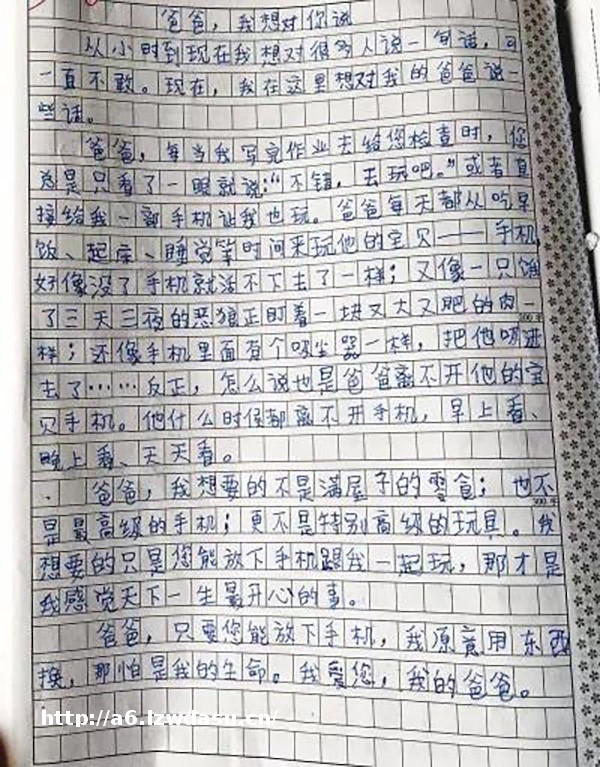 爸爸，我想对你说
从小时到现在我想对很多人说一句话，可
一直不敢。现在，我在这里想对我的爸爸说一
些话。
爸爸，每当我写完作业去给您检查时，您
总是只看了一眼就说：“不错，去玩吧。”或者直
接给我一部手机让我也玩。爸爸每天都从吃早
饭、起床、睡觉等时间来玩他的宝贝——手机
好像没了手机就活不下去了一样；又像一只饿
了三天三夜的恶狼正盯着一块又大又肥的肉一
300字
样；还像手机里面有个吸尘器一样，把他吸进
去了……反正，怎么说也是爸爸离不开他的宝
贝手机。他什么时候都离不开手机，早上看、
晚上看、天天看。
爸爸，我想要的不是满屋子的零食；也不
500字
是最高级的手机；更不是特别高级的玩具。我
想要的只是您能放下手机跟我一起玩，那才是
我感觉天下一生最开心的事。
爸爸，只要您能放下手机，我原意用东西
换，那怕是我的生命。我爱您，我的爸爸。
http://a6.lzwdasu.cn/